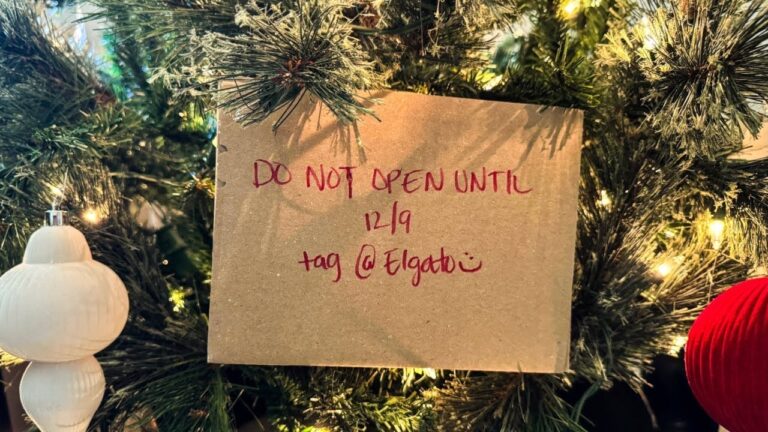 DO NOT OPEN UNTIL
12/9
tag @Elgato :)